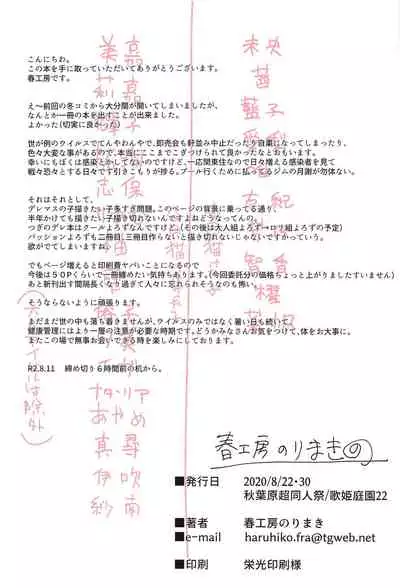 こんにちわ。
この本を手に取っていただいてありがとうございます。
春工房です。
え～前回の冬コミから大分間が開いてしまいましたが、
なんとか一冊の本を出すことが出来ました。
よかった(切実に良かった)
世が例のウイルスでてんやわんやで、即売会も軒並み中止だったり自粛になってしまったり、
色々大変な事があるので、本当にここまでこぎつけられて良かったなとおもいます。
幸いにもぼくは感染とかしてないのですけど、一応関東住なので日々増える感染者を見て
戦々恐々とする日々です引きこもりが捗る。プール行くために払ってるジムの月謝が勿体ない。
それはそれとして、
デレマスの子描きたい子多すぎ問題。このページの背景に乗ってる通り、
半年かけても描きたい子描き切れないんですよねどうなってんの。
つぎのデレ本はクールよろずなんですけど、(その後は大人組よろず→ロリ組よろずの予定)
パッションよろずも二冊目(三冊目作らないと描き切れないじゃないですかっていう。
欲がでてしまいますね。
でもページ増えると印刷費ヤバいことになるので
今後は５０Pくらいで一冊締めたい気持ちあります。(今回委託分の価格ちょっと上がりましたすいません)
あと新刊出す間隔長くなり過ぎて人々に忘れられそうなのも怖い。
そうならないように頑張ります。
まだまだ世の中も落ち着きませんが、ウイルスのみではなく暑い日も続いて、
健康管理にはより一層の注意が必要な時期です。どうかみなさんお気をつけて、体をお大事に。
またこの場で無事お会いできる時を楽しみにしております。
R2.8.11 締め切り６時間前の机から。
未央
茜
藍子
智香
美嘉
莉嘉
ナターリア
あやめ
真尋
伊吹
紗南
春工房のりまき
■発行日 2020/8/22・30
秋葉原超同人祭/歌姫庭園22
■著者 春工房のりまき
■e-mail haruhiko.fra@tgweb.net
■印刷 栄光印刷様